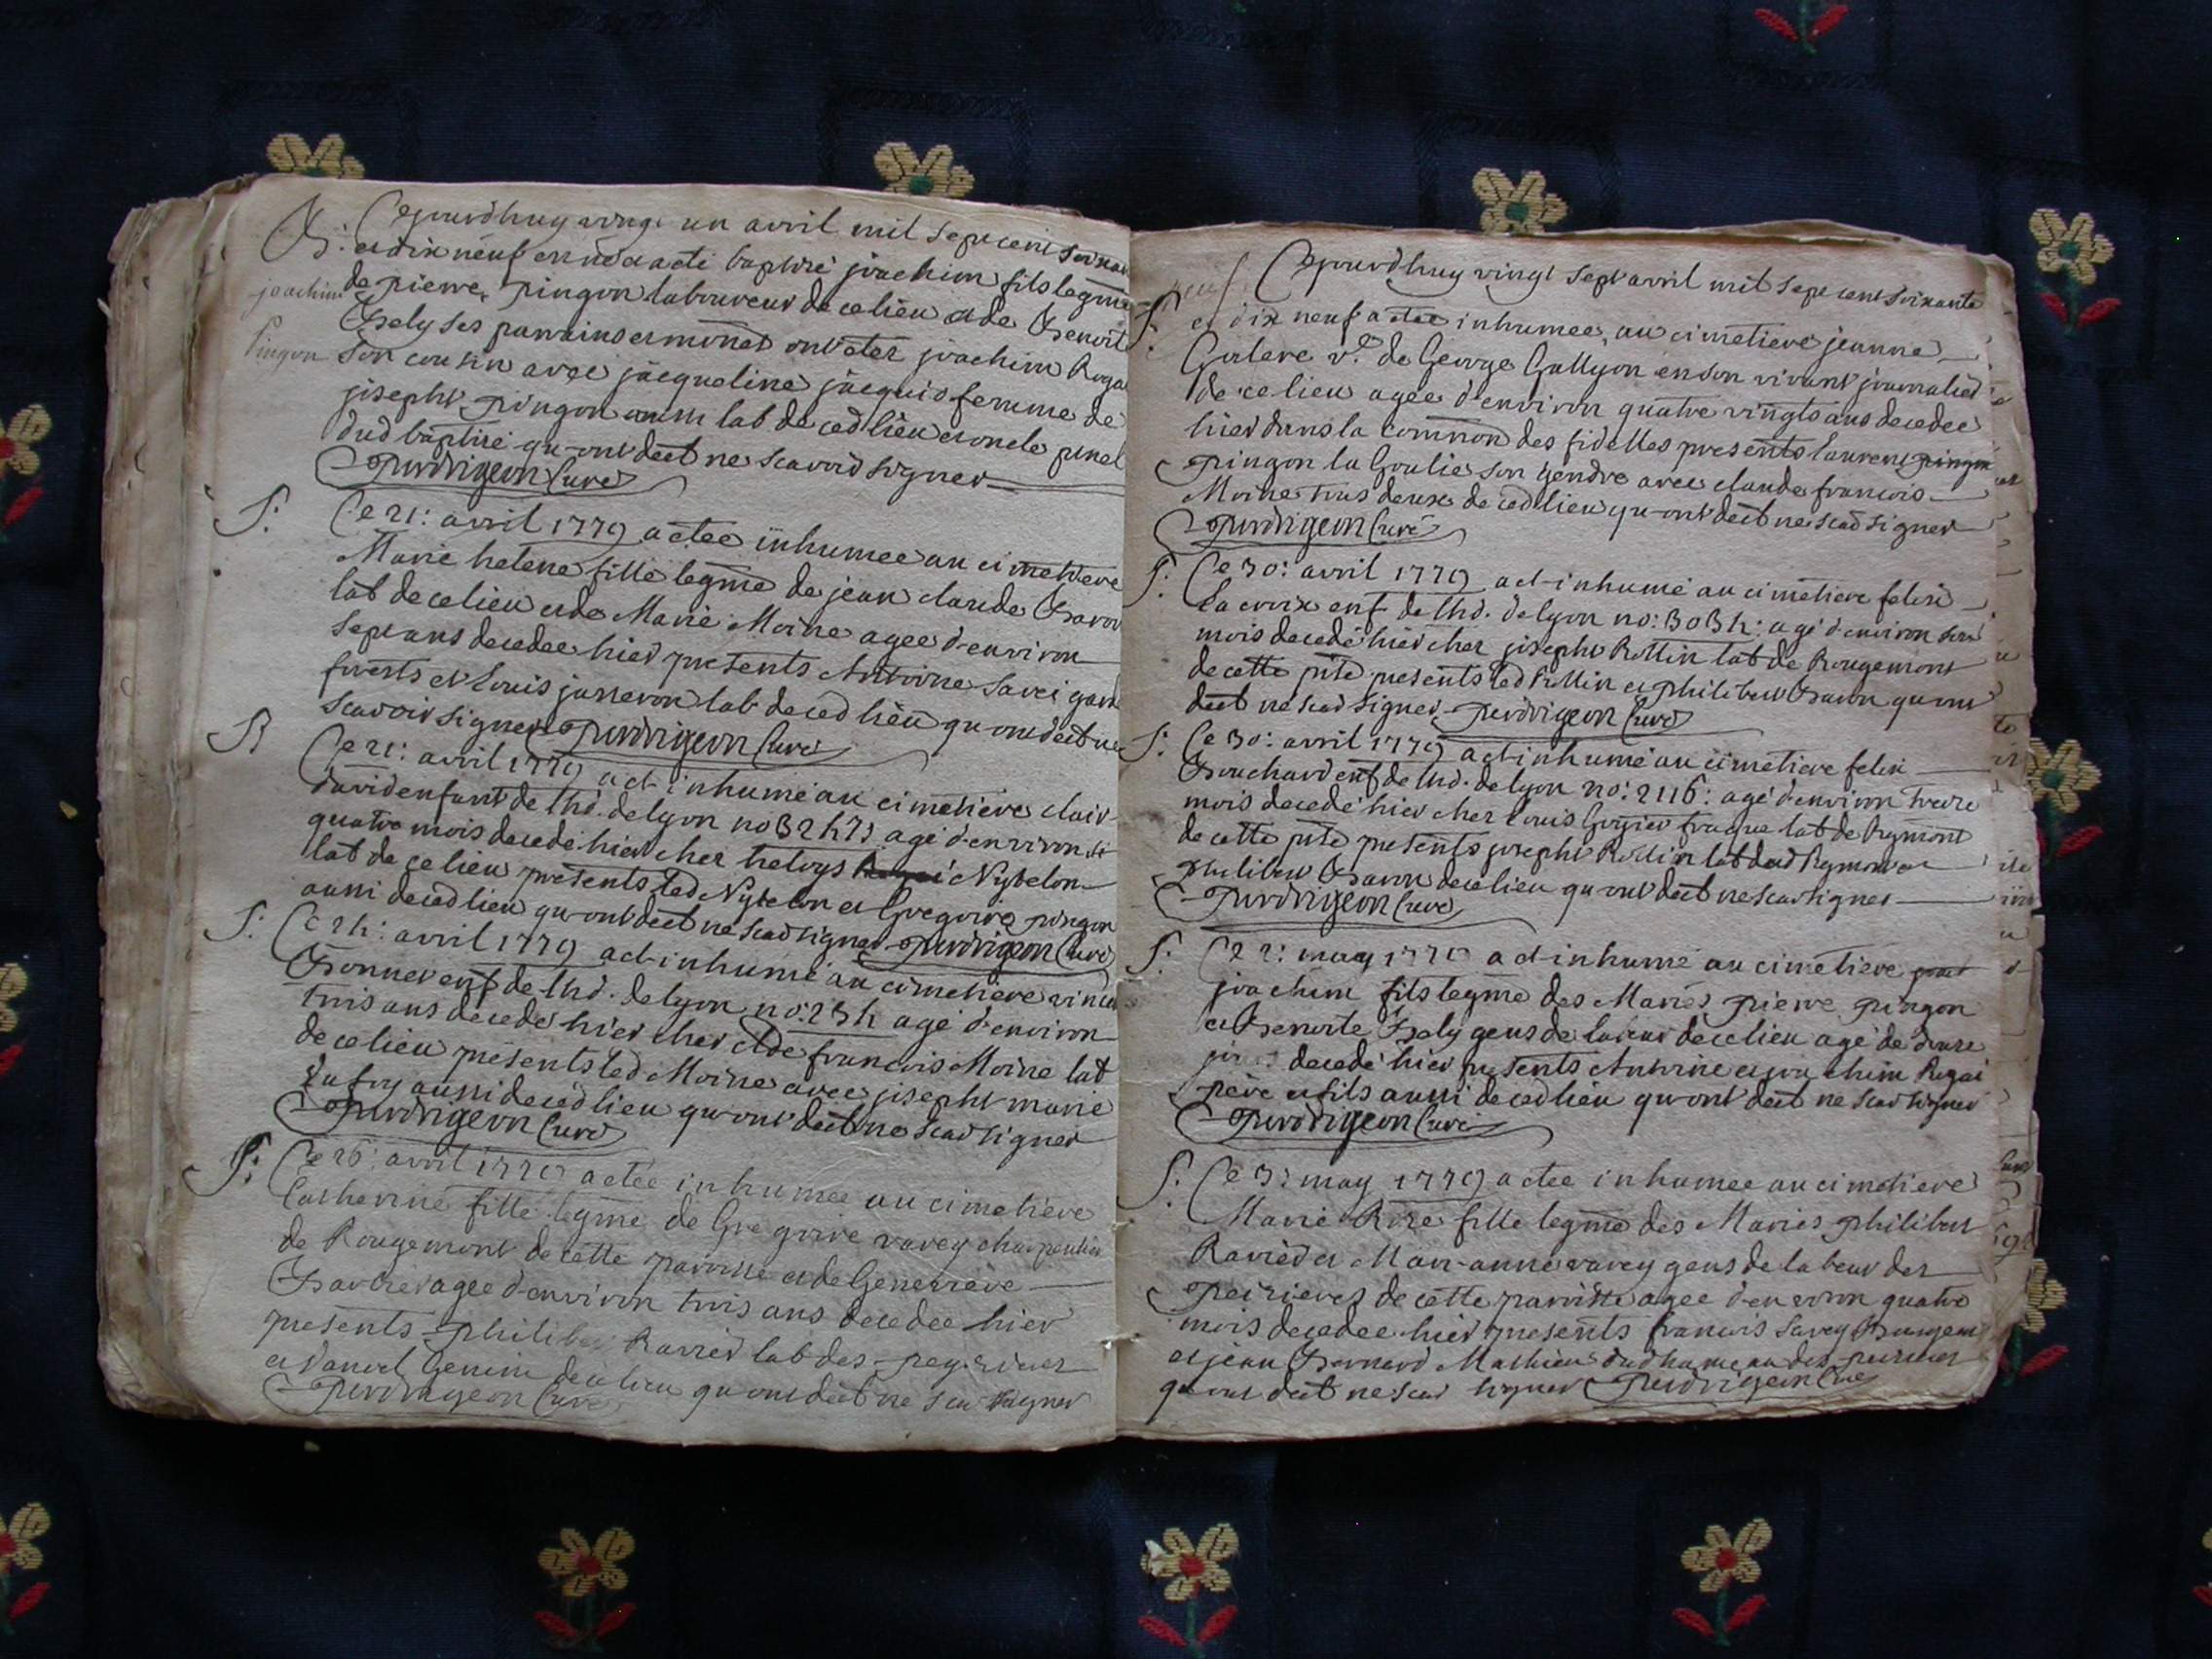 B: Cejourdhuy vingt un avril mil sept cent soixan
et dix neuf est né et a eté baptisé joachim fils legme
joachim de pierre pingon laboureur de ce lieu et de Benoit
Pingon
Bely ses parrains et ont etez joachim Roga
son cousin avec jacqueline jacquis femme de
joseph pingon aussi lab de ced lieu et oncle
dud baptisé qu-ont dect ne scavoir signer
perdrigeon Curé
S: Ce 21: avril 1779 a etee inhumee au cimetiere
Marie helene fille legme de jean claude Baron
lab de ce lieu et de Marie Moine agee d'environ
sept ans decedee hier presents Antoine Savei gard
forests et Louis janneron lab de ced lieu qu ont dect ne
scavoir signer perdrigeon Curé
Ce 21: avril 1779 a et-inhumé au cimetiere clair
david enfant de lhd. de lyon no agé d'environ
quatre mois decedé hier chez Nybelon
lab de ce lieu presents led Nybelon et Gregoire pingon
aussi de ced lieu qu-ont dect ne scav signer perdrigeon Curé
S: Ce 24: avril 1779 a et-inhumé au cimetiere vincen
Bonnet enf de lhd. de lyon no: 234 agé d'environ
trois ans decedé hier chez Cl de francois Moine lab
de ce lieu presents led Moine avec joseph marie
Dufoy aussi de ced lieu qu-ont dect ne scav signer
perdrigeon Curé
S: Ce 26: avril 1779 a etée inhumee au cimetiere
Catherine fille legme de Gregoire varey charpentier
de Rougemont de cette paroisse et de Genevieve
agee d'environ trois ans decedee hier
presents philiber Ravier lab des
et Genin de ce lieu qu ont dect ne scav signer
perdrigeon Curé
S: Cejourdhuy vingt sept avril mil sept cent soixante
et dix neuf a etee inhumee au cimetiere jeanne
ve de George Gallyon en son vivant journalier
de ce lieu agee d'environ quatre vingts ans decedee
hier dans la common des fidelles presents laurent pingon
pingon la Goulie son gendre avec claude francois
Moine tous deux de ced lieu qu-ont dect ne scav signer
perdrigeon Curé
S: Ce 30: avril 1779 a et-inhumé au cimetiere felix
la croix enf de lhd. de lyon no: 3034: agé d'environ
mois decedé hier chez joseph Rollin lab de Rougemont
de cette psse presents led Rollin et philibert Baron qu ont
dect ne scav signer perdrigeon Curé
S: Ce 30: avril 1779 a et-inhumé au cimetiere felix
Bouchard enf de lhd. de lyon no: 2116: agé d'environ treize
mois decedé hier chez Louis lab de
de cette psse presents joseph Rollin lab dud et
philibert Baron de ce lieu qu-ont dect ne scav signer
perdrigeon Curé
S: Ce 2: may 1779 a et-inhumé au cimetiere
joachim fils legme des Mariés pierre pingon
et Benoite Bely gens de labeur de ce lieu agé de douze
decedé hier presents Antoine et joachim Rogai
père et fils aussi de ced lieu qu-ont dect ne scav signer
perdrigeon Curé
S: Ce 3: may 1779 a etee inhumee au cimetiere
Marie Rose fille legme des Mariés philibert
Ravier et Mari-anne varey gens de labeur des
peirieres de cette paroisse agee d'environ quatre
mois decedee hier presents francois Savey
et jean Bernard Mathieu dud hameau des peirieres
qu-ont dect ne scav signer perdrigeon Curé